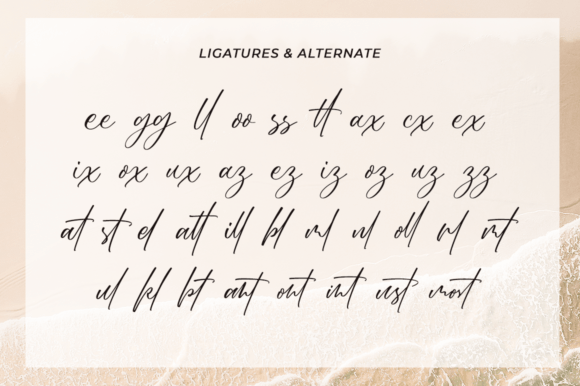 LIGATURES & ALTERNATE
ee gg ll oo ss tt ax cx ex
ix ox ux az ez iz oz uz zz
at st el att ill bl ml nl oll rl
ul kl bt ant ont int ust most